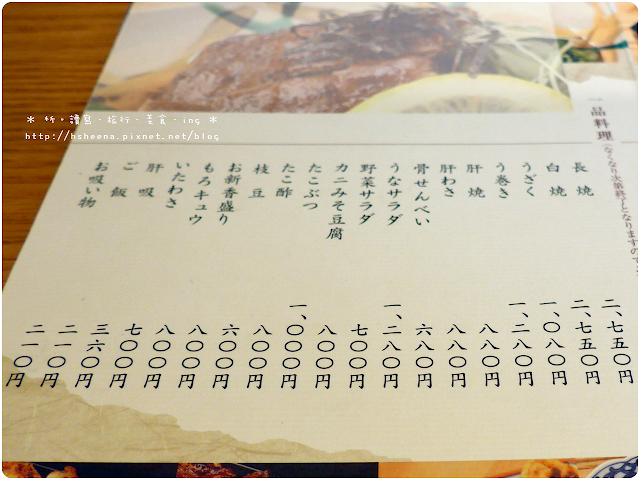 ＊ 忻。讀寫·旅行·美食·ing ＊
http://hsheena.pixnet.net/blog
一品料理（なくなり次第終了となりますので
長焼 二、七五〇円
白焼 二、七五〇円
うざく 一、〇八〇円
う巻き 一、二八〇円
肝焼 八八〇円
肝わさ 八八〇円
骨せんべい 六八〇円
うなサラダ 一、二八〇円
野菜サラダ 七〇〇円
カニみそ豆腐 八〇〇円
たこぶつ 一、〇〇〇円
たこ酢 八〇〇円
枝豆 六〇〇円
お新香盛り 八〇〇円
もろキュウ 八〇〇円
いたわさ 七〇〇円
肝吸 三六〇円
ご飯 二一〇円
お吸い物 二一〇円